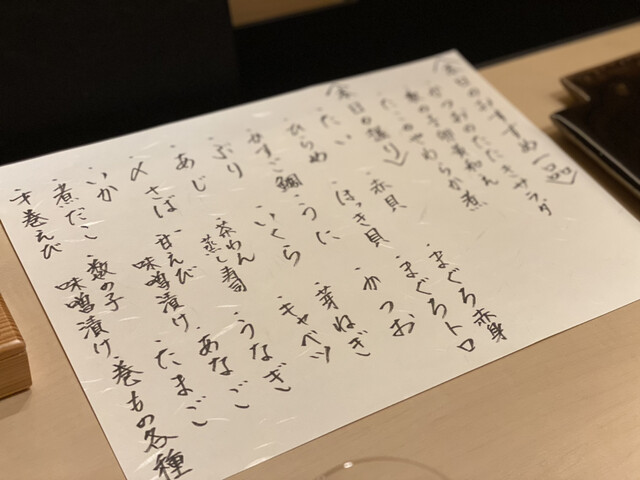 〈本日のおすすめ一品〉
・かつおのたたきサラダ
・魚の子卵黄和え
・たこのやわらか煮
〈本日の握り〉
・たい
・ひらめ
・かすご鯛
・ぶり
・あじ
・〆さば
・いか
・煮だこ
・車巻えび
・赤貝
・ほっき貝
・うに
・いくら
・茶わん蒸し寿司
・甘えび味噌漬け
・数の子味噌漬け
・まぐろ赤身
・まぐろトロ
・かつお
・芽ねぎ
・キャベツ
・うなぎ
・あなご
・たまご
・巻もの各種